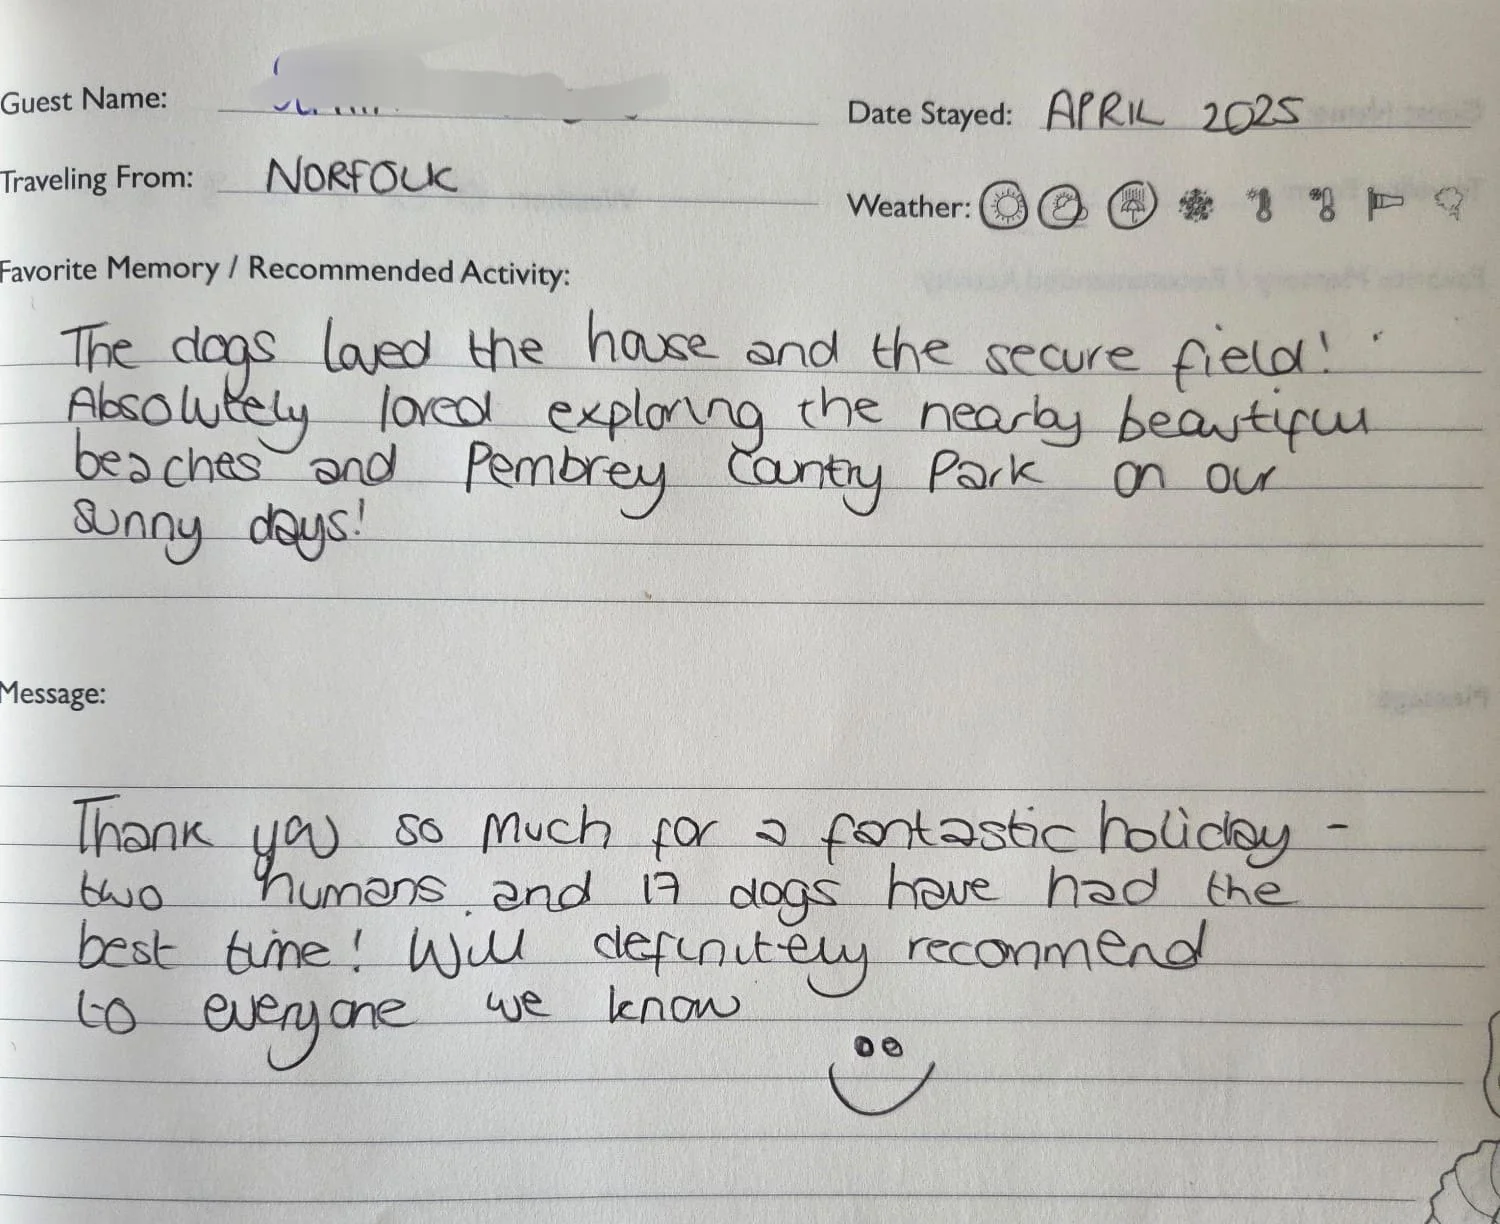 Guest Name:
Date Stayed: APRIL 2025
Traveling From: NORFOLK
Weather:
Favorite Memory / Recommended Activity:
The dogs loved the house and the secure field!
Absolutely loved exploring the nearby beautiful
beaches and Pembrey Country Park on our
sunny days!
Message:
Thank you so much for a fantastic holiday -
two humans and 17 dogs have had the
best time! Will definitely recommend
to everyone we know